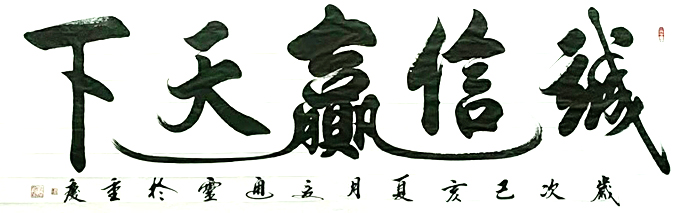 誠信贏天下
歲次己亥夏月立通靈於重慶